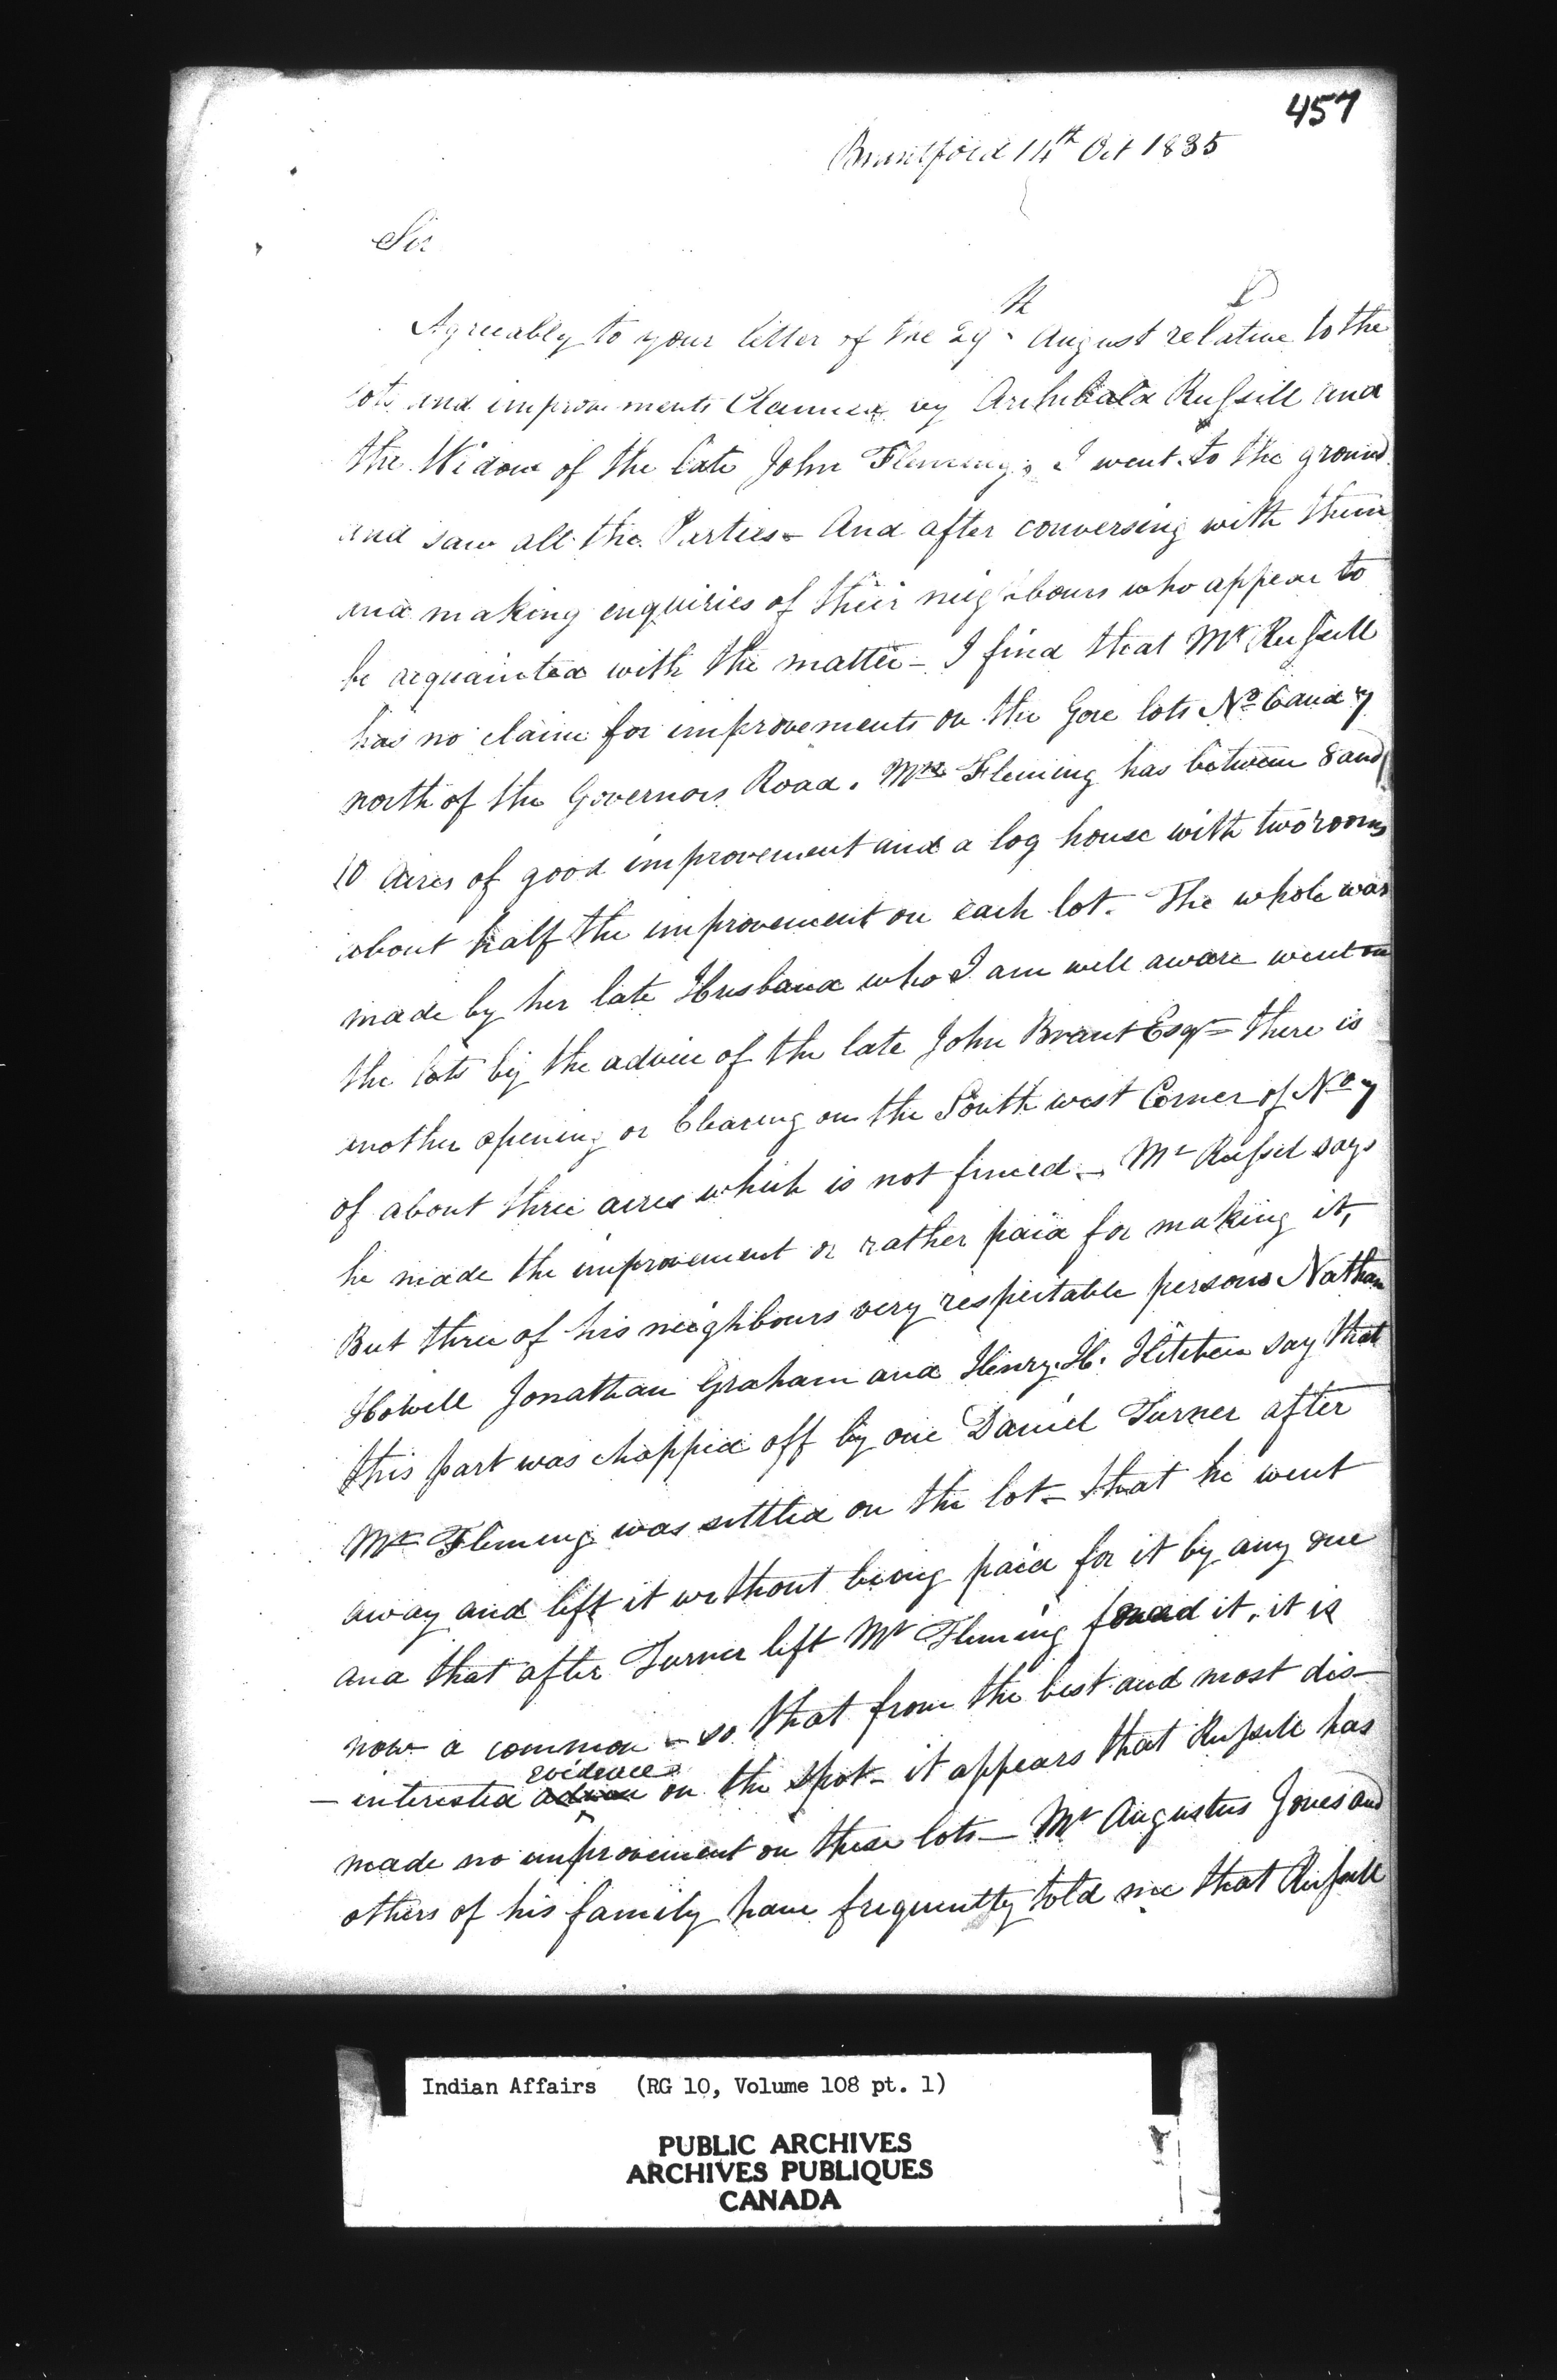 457
Brantford 14th Oct 1835
Sir
Agreeably to your letter of the 29th August relative to the
lots and improvements Claimed by Archibald Russell and
the Widow of the late John Fleming, I went to the ground
and saw all the Parties - And after conversing with them
and making enquiries of their neighbours who appear to
be acquainted with the matter - I find that Mr Russell
has no claim for improvements on the Gore lots No 6 and 7
north of the Governors Road. Mrs Fleming has between 8 and
10 acres of good improvement and a log house with two rooms
about half the improvement on each lot. The whole was
made by her late Husband who I am well aware went on
the lots by the advice of the late John Brant Esqr - there is
another opening or Clearing on the South west Corner of No 7
of about three acres which is not fenced - Mr Russel says
he made the improvement or rather paid for making it,
But three of his neighbours very respectable persons Nathan
Howell Jonathan Graham and Henry. H. say that
this part was chopped off by one Daniel Turner after
Mr Fleming was settled on the lot - that he went
away and left it without being paid for it by any one
and that after Turner left Mr Fleming it, it is
now a common - so that from the best and most dis-
- interested evidence on the spot - it appears that Russell has
made no improvement on these lots - Mr Augustus Jones and
others of his family have frequently told me that Russell
Indian Affairs (RG 10, Volume 108 pt. 1)
PUBLIC ARCHIVES
ARCHIVES PUBLIQUES
CANADA